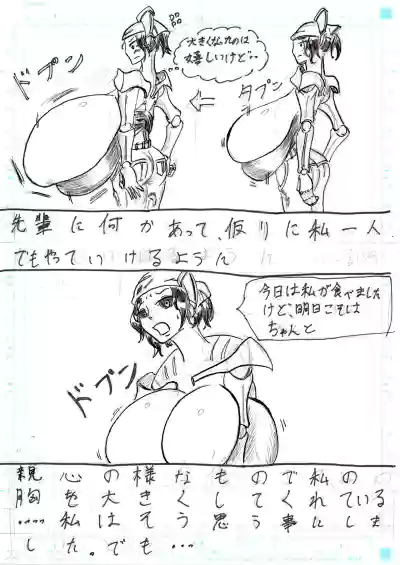 大きくなったのは
嬉しいけど…
ドプン
タプン
先輩に何かあって、仮りに私一人
でもやっていけるように
今日は私が食べました
けど、明日こそは
ちゃんと
ドプン
親心の様なもので私の
胸を大きくしてくれている
……私はそう思う事にしま
した。でも…